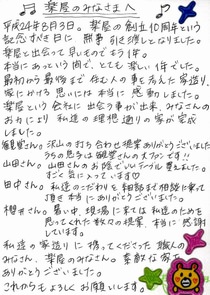 楽屋のみなさまへ
平成24年8月3日。楽屋の創立10周年という
記念すべき日に 無事 引き渡しとなりました。
楽屋と出会って早いものでもう1年。
本当にあっという間で、とても楽しい1年でした。
最初から最後まで住む人の事を考えた家造り、
家にかける思いには本当に感動しました。
楽屋という会社に出会う事が出来、みなさんの
お力により 私達の理想通りの家が完成
しました。
沢山の打ち合わせ・提案 ありがとうございました
山田さん。山田さんのお陰で
すごく気に入っています♡
田中さん。私達のこだわりを細部まで相談に乗って
頂き本当にありがとうございました。
櫻井さん。暑い中、現場に来ては 私達のための
思ってくれた数々の提案、本当に感謝
しています。
私達の家造りに携ってくださった 職人の
みなさん、楽屋のみなさん。素敵な家を
ありがとうございました。
これからもよろしくお願いします。